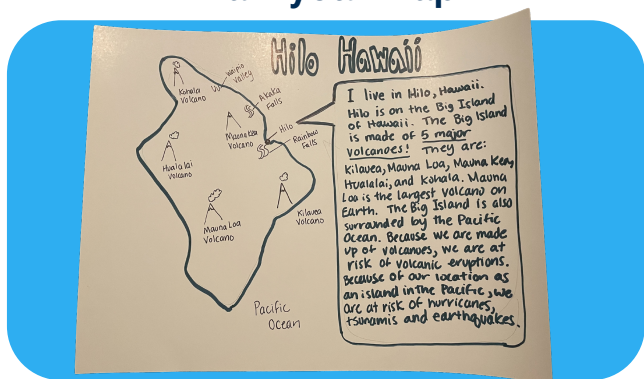 Hilo Hawaii
Kohala
Volcano
Waipio
Valley
Akaka
Falls
Mauna Kea
Volcano
Hilo
Rainbow
Falls
Hualalai
Volcano
Mauna Loa
Volcano
Kilauea
Volcano
Pacific
Ocean
I live in Hilo, Hawaii.
Hilo is on the Big Island
of Hawaii. The Big Island
is made of 5 major
volcanoes! They are:
Kilauea, Mauna Loa, Mauna Kea,
Hualalai, and Kohala. Mauna
Loa is the largest volcano on
Earth. The Big Island is also
surrounded by the Pacific
Ocean. Because we are made
up of volcanoes, we are at
risk of volcanic eruptions.
Because of our location as
an island in the Pacific, we
are at risk of hurricanes,
tsunamis and earthquakes.